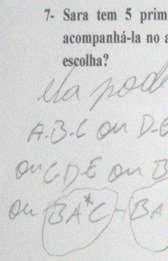 7- Sara tem 5 prim
acompanhá-la no a
escolha?
Ela pod
A.B.C ou D.E
ou C D E ou B
ou BA*C - BA